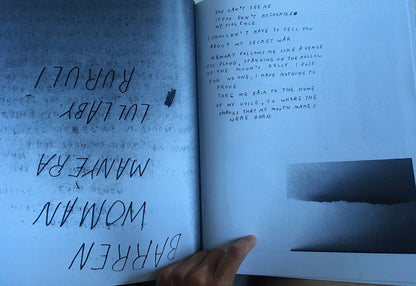 BARREN
WOMAN
MANYERA
LULLABY
RURULI
YOU CAN'T SEE ME
IF YOU DON'T RECOGNISE
MY VIOLENCE.
I SHOULDN'T HAVE TO TELL YOU
ABOUT MY SECRET WAR
MEMORY FOLLOWS ME LIKE A VENGE
-FUL FLOOD, STANDING ON THE HOLLOW
OF THE MOON'S BELLY I POSE
FOR NO ONE, I HAVE NOTHING TO
PROVE
TAKE ME BACK TO THE HOME
OF MY VOICE, TO WHERE THE
SHAPES THAT MY MOUTH MAKES
WERE BORN.